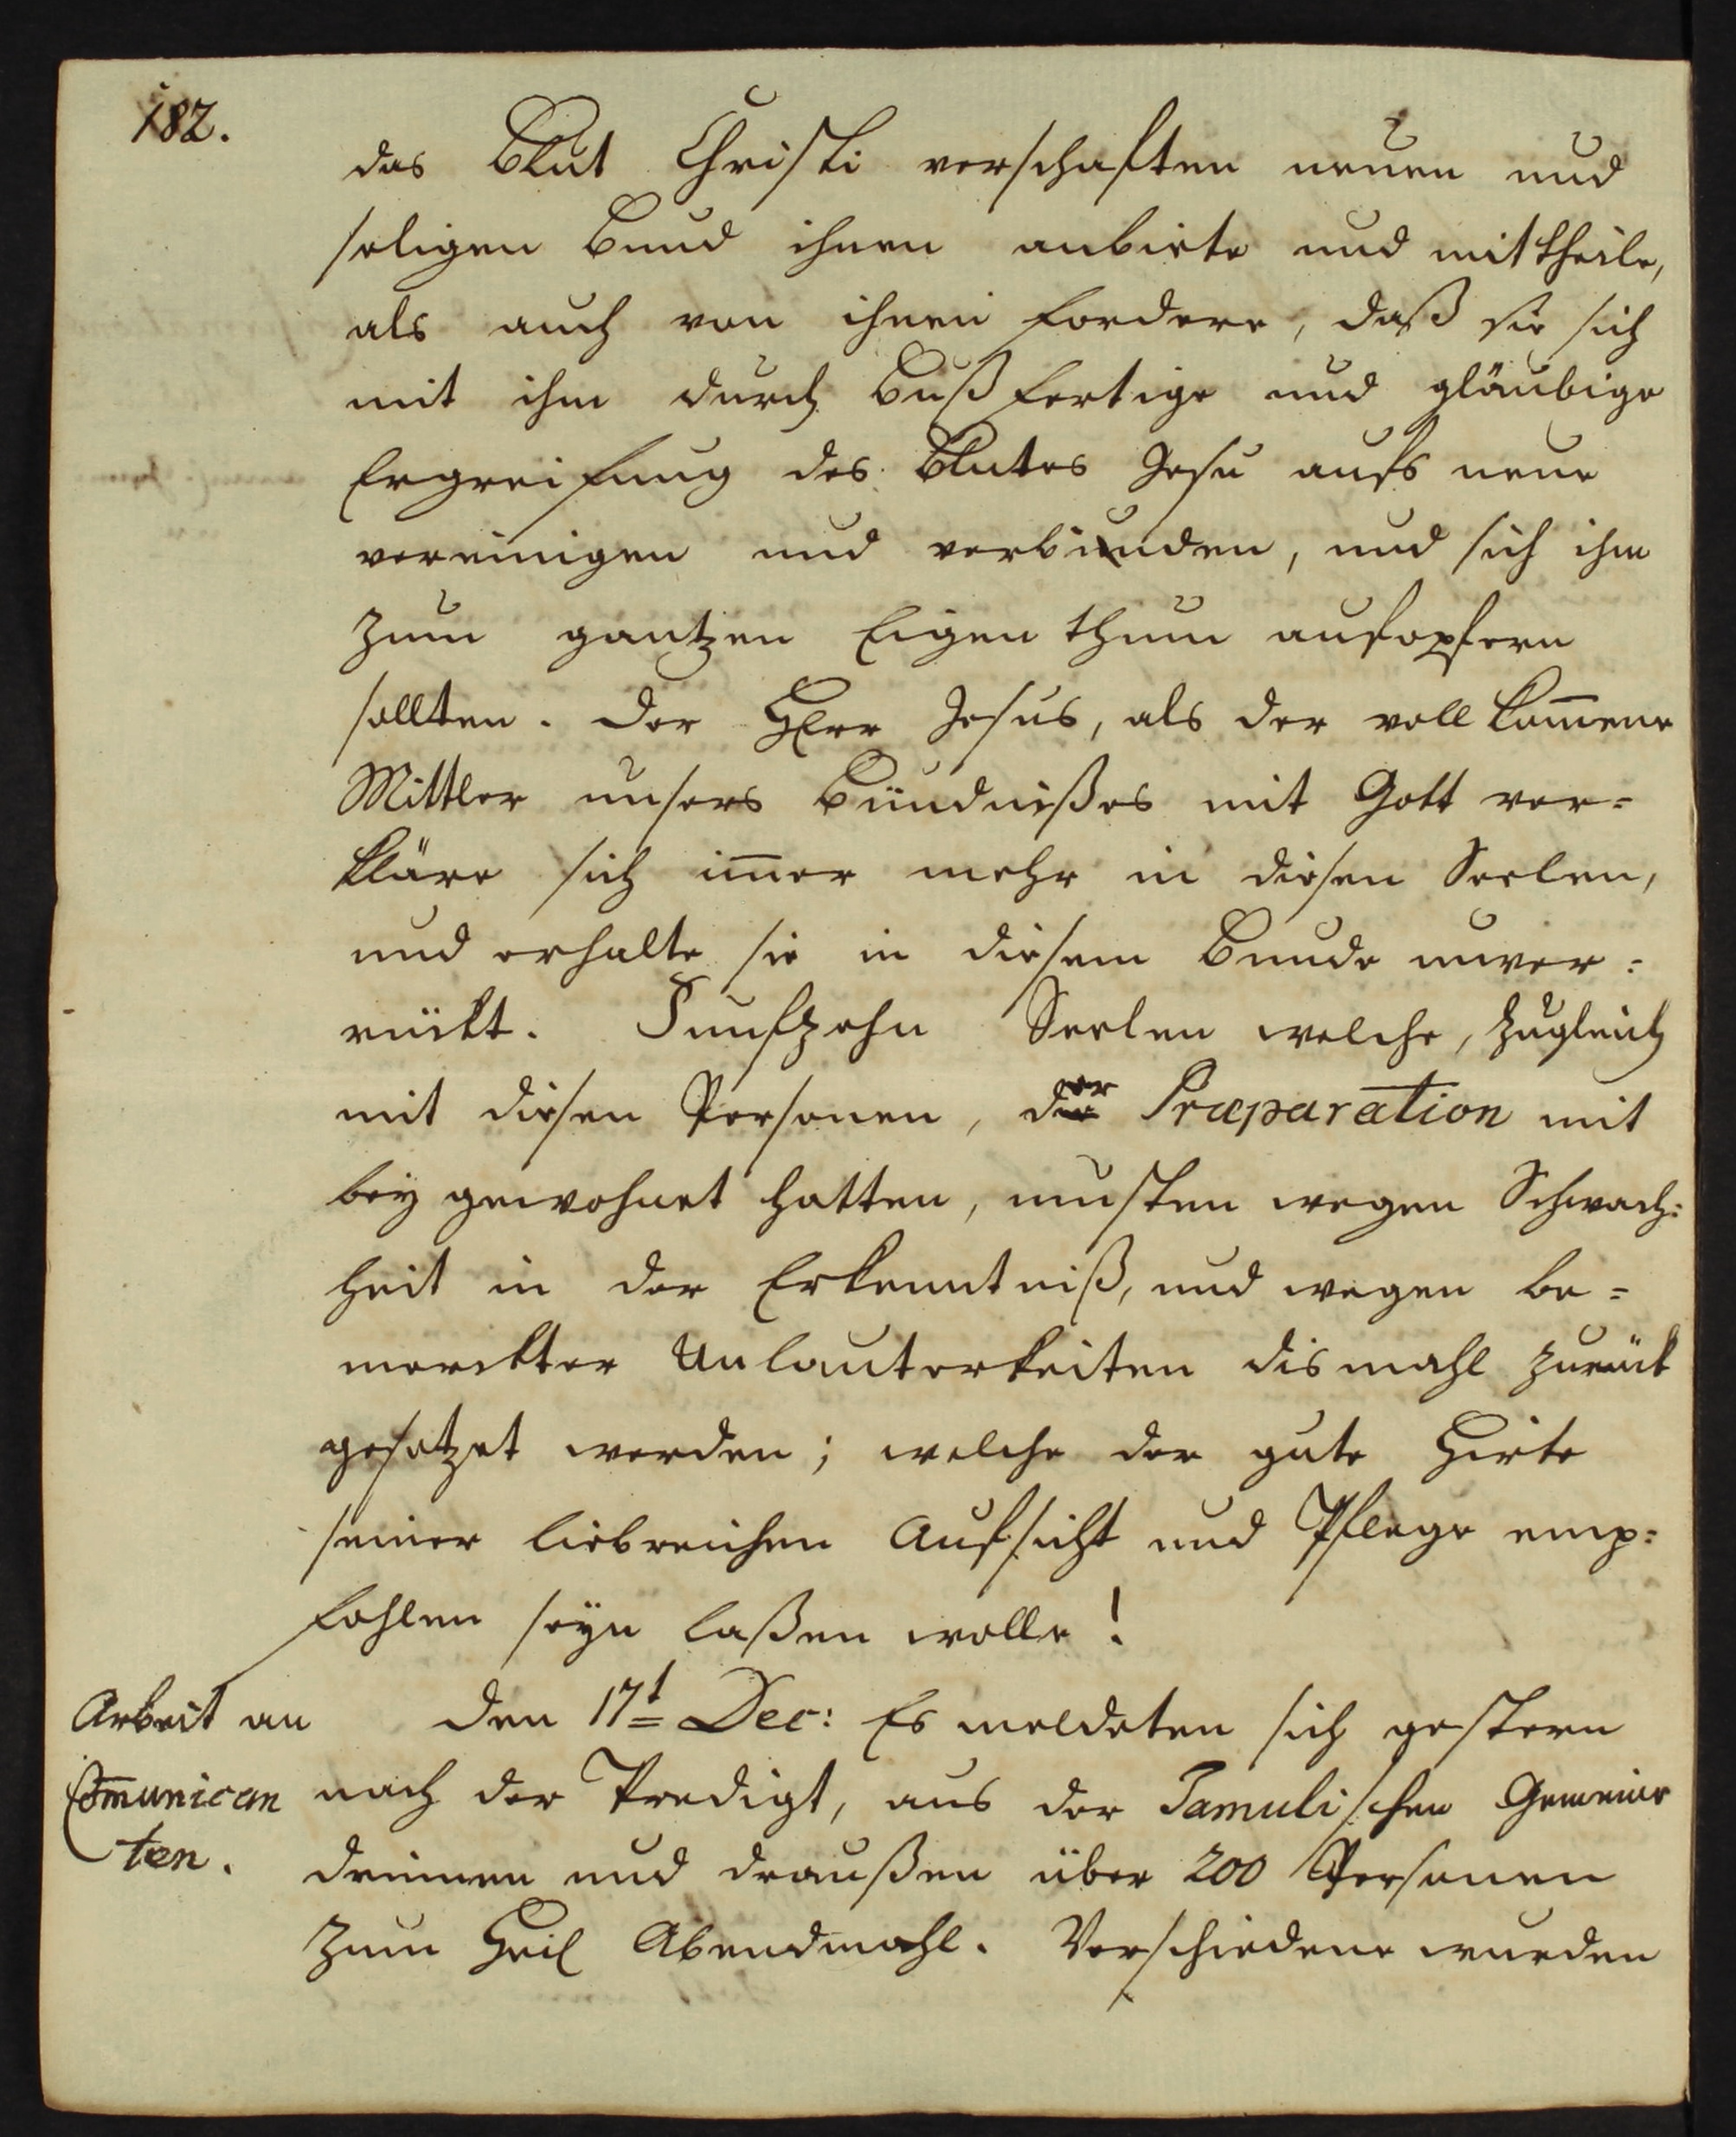 182.
das Blut Christi verschafften neuen und
seligen Bund ihnen anbiete und mittheile,
als auch von ihnen fordere, daß sie sich
mit ihm durch bußfertige und gläubige
Ergreifung des Blutes Jesu aufs neue
vereinigen und verbinden, und sich ihm
zum gantzen Eigenthum aufopfern
sollten. Der HErr Jesus, als der vollkom̄ene
Mittler unsers Bündnißes mit Gott ver=
kläre sich im̄er mehr in diesen Seelen,
und erhalte sie in diesem Bunde unver=
rückt. Funfzehn Seelen welche, zugleich
mit diesen Personen, der Præparation mit
bey gewohnet hatten, musten wegen Schwach=
heit in der Erkenntniß, und wegen be=
merckter Unlauterkeiten dismahl zurück
gesetzet werden; welche der gute Hirte
seiner liebreichen Aufsicht und Pflege emp=
fohlen seyn laßen wolle!
Arbeit an
Com̄unican
ten.
Den 17t Dec: Es meldeten sich gestern
nach der Predigt, aus der Tamulischen Gemeine
drinnen und draußen über 200 Personen
zum Heil Abendmahl. Verschiedene wurden